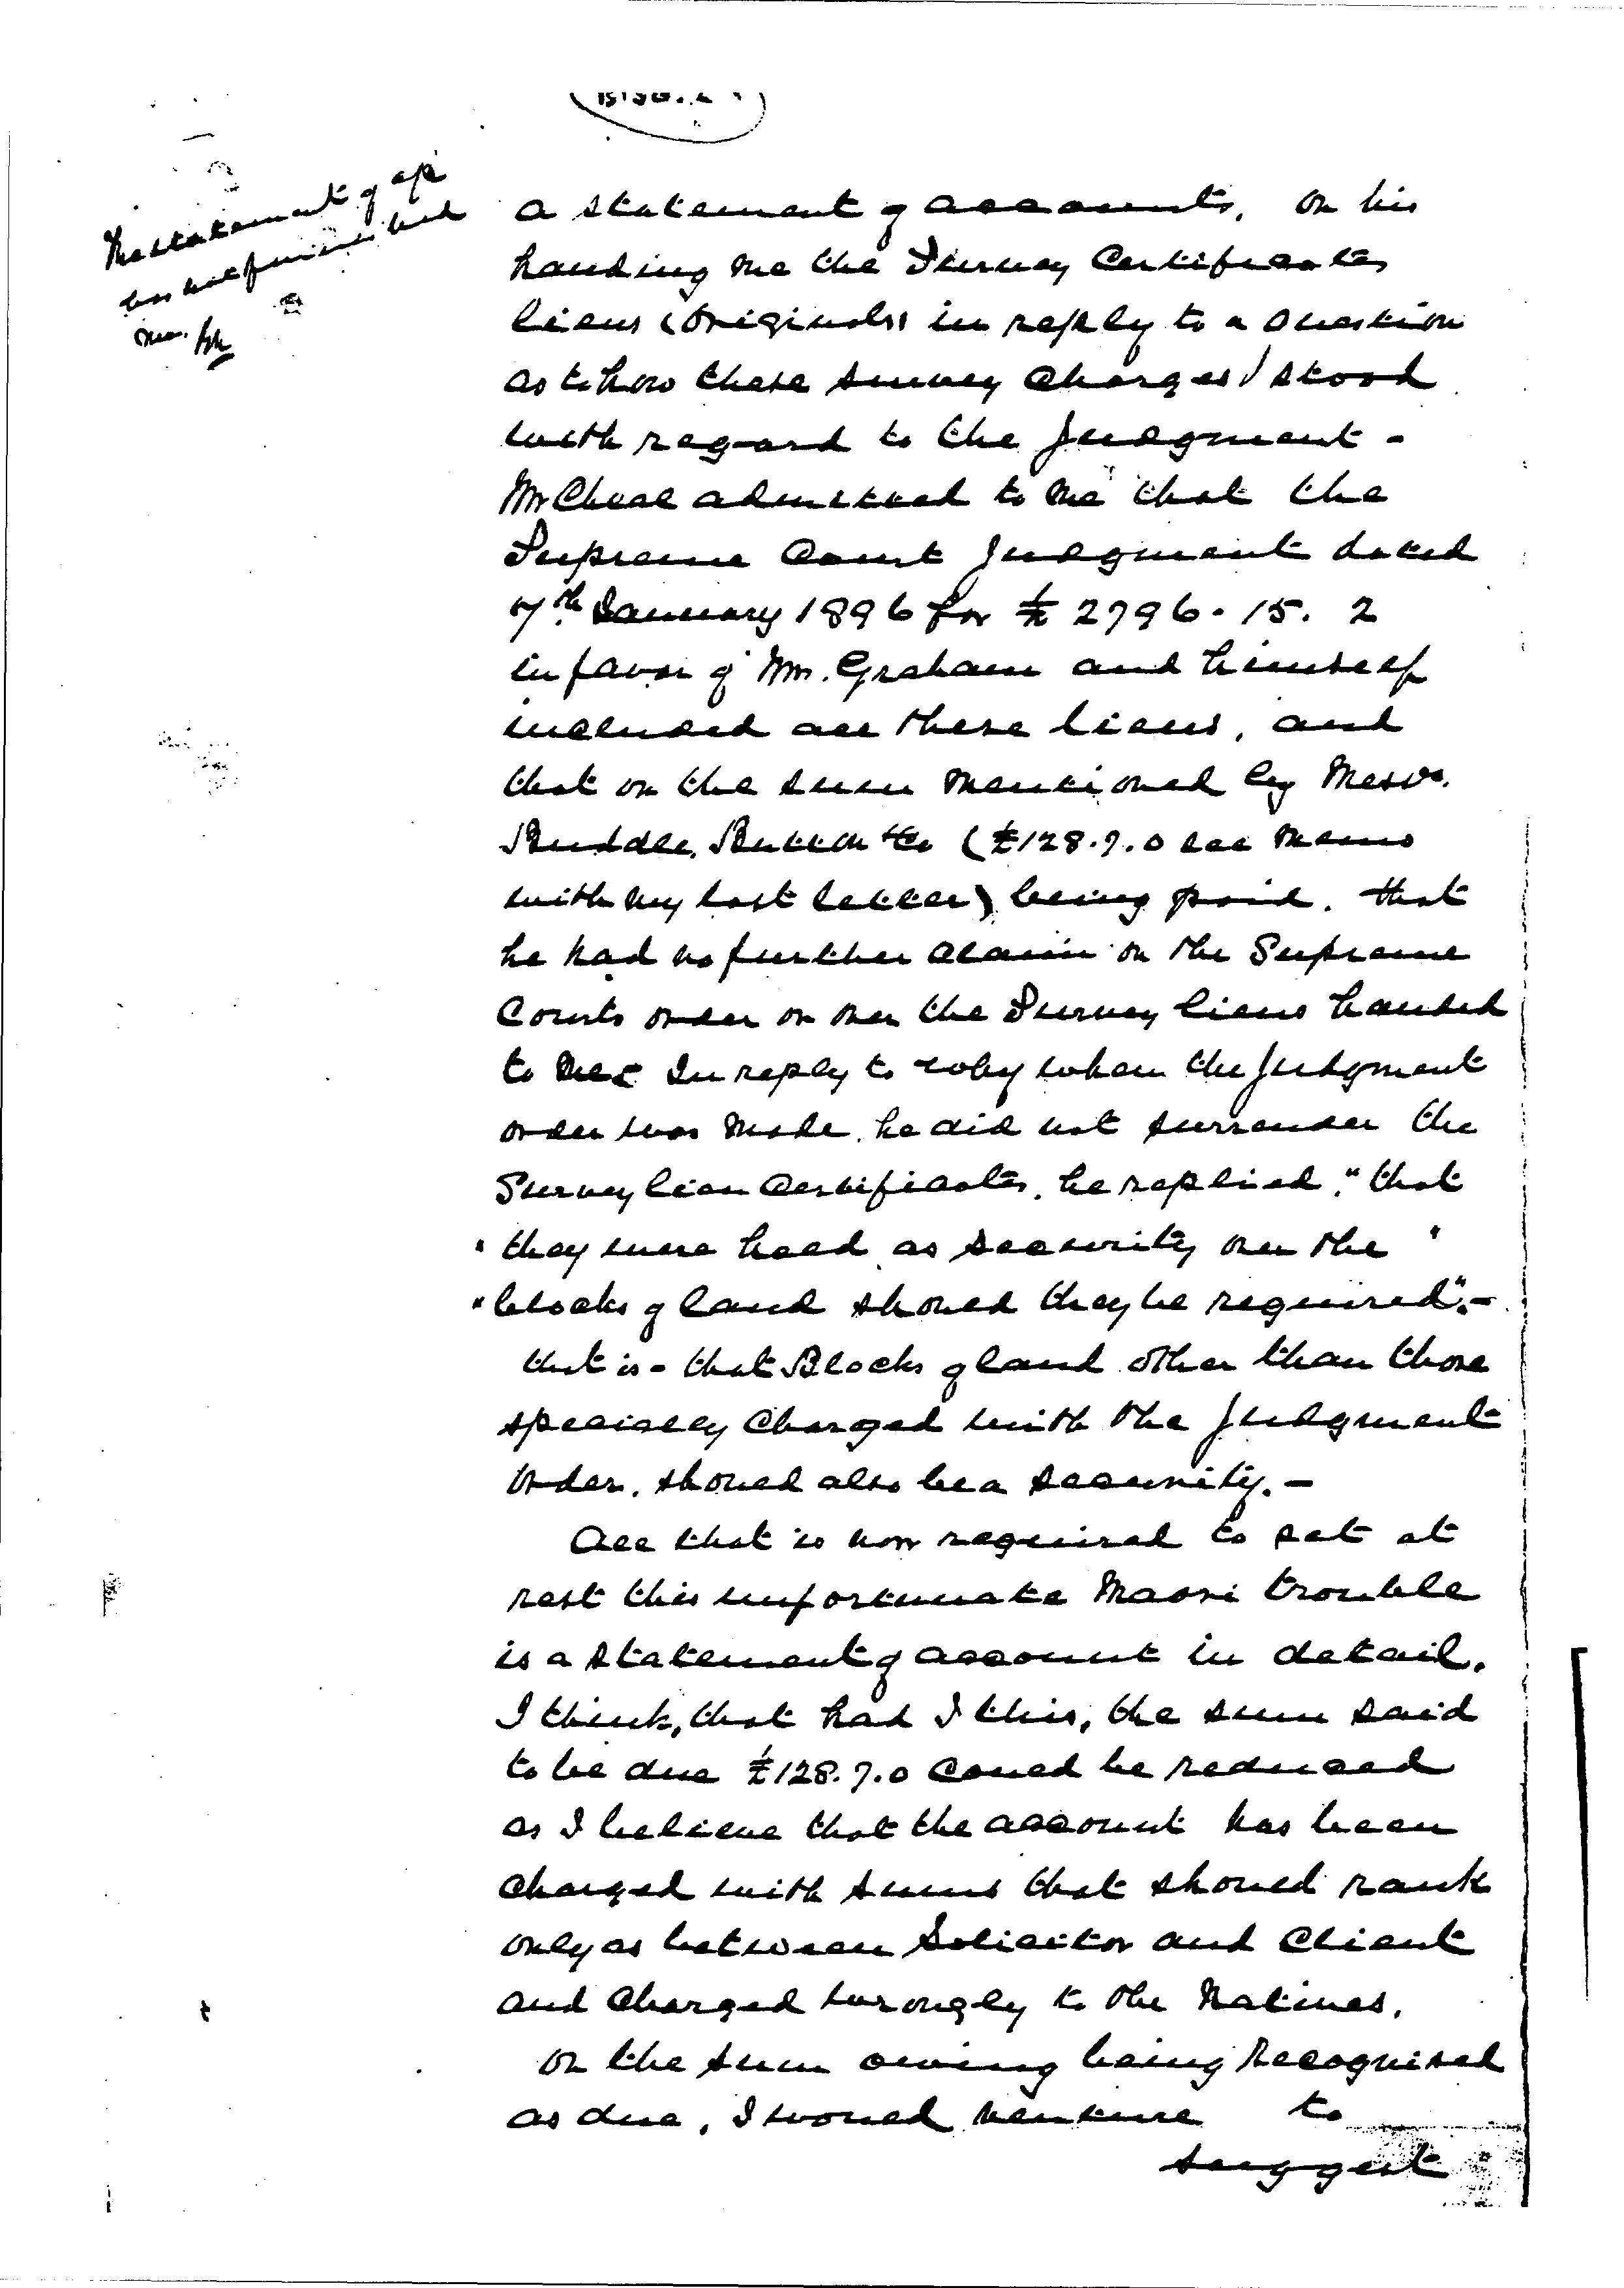 The statement of a/c
has not furnished
me.
a statement of accounts, On his
handing me the Survey Certificates
liens (Originals) in reply to a question
as to how these survey charges stood
with regard to the Judgment -
Mr Cheal admitted to me that the
Supreme Court Judgment dated
7th January 1896 for £2796. 15. 2
in favor of Mr. Graham and himself
included all these liens, and
that on the sum mentioned by Messrs.
Buddle, Button & Co (£128.7.0 see memo
with my last letter) being paid. that
he had no further claim on the Supreme
Courts order or over the Survey liens handed
to me. In reply to why when the Judgment
order was made, he did not surrender the
Survey lien Certificates, he replied, "that
"they were held as security over the "
"blocks of land should they be required". -
that is - that Blocks of land other than those
specially charged with the Judgment
Order, should also be a security. -
All that is now required to set at
rest this unfortunate Maori trouble
is a statement of account in detail.
I think, that had I this, the sum said
to be due £128.7.0 could be reduced
as I believe that the account has been
charged with sums that should rank
only as between Solicitor and Client
and charged wrongly to the Natives.
On the sum owing being recognised
as due, I would venture to
suggest